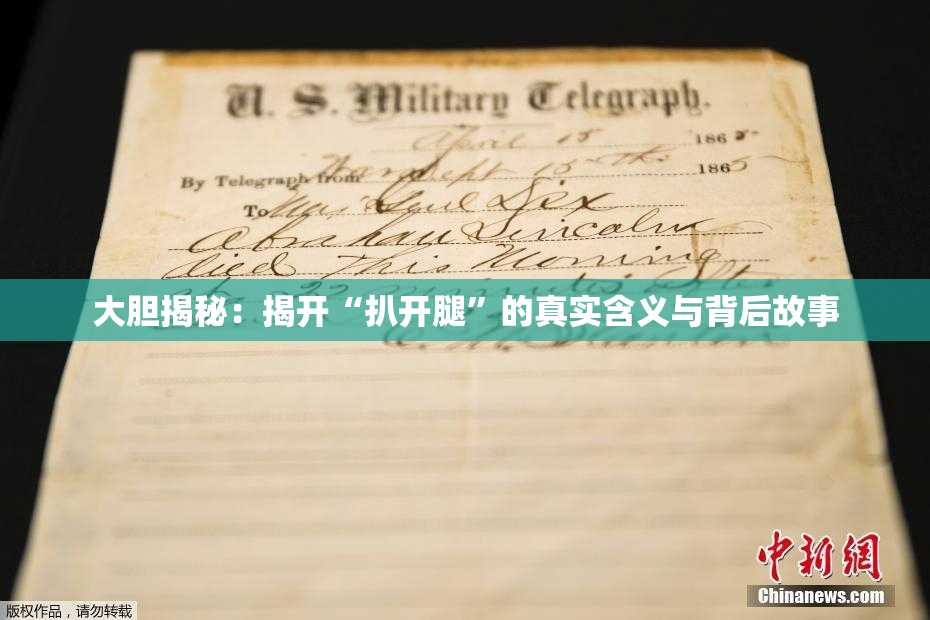 U. S. Military Telegraph.
April 15 1865
By Telegraph from War Dept 15th 1865
To Maj Genl Dix
Abraham Lincoln
died This Morning
22 minutes after
大胆揭秘：揭开“扒开腿”的真实含义与背后故事
E. M. Stanton
中新网
Chinanews.com
版权作品，请勿转载